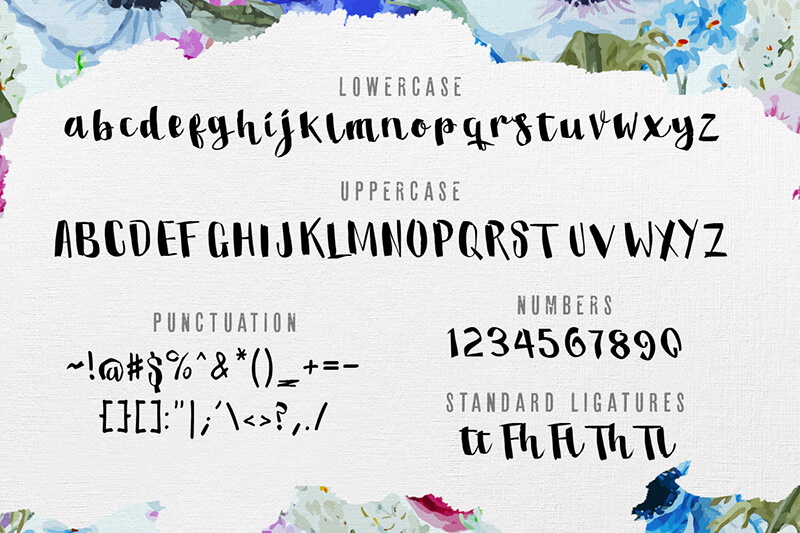 LOWERCASE
abcdefghijklmnopqrstuvwxyz
UPPERCASE
ABCDEFGHIJKLMNOPQRSTUVWXYZ
PUNCTUATION
~!@#$%^&*()_+=-
{}[]:"|;'\<>?,./
NUMBERS
1234567890
STANDARD LIGATURES
tt Fh Fl Th Tl